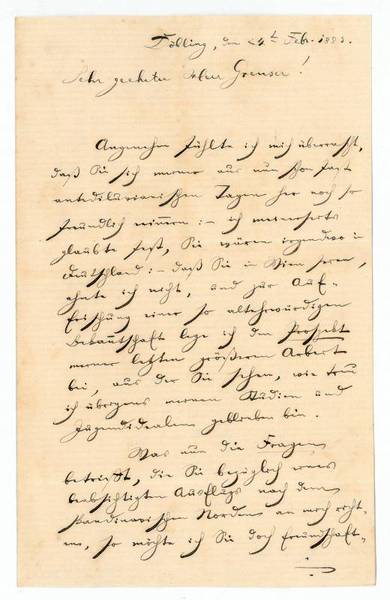 Döbling, den 24t Febr. 1883.
Sehr geehrter Herr Grenser!
Angenehm fühlte ich mich überrascht,
daß Sie sich meiner aus nun schon fast
antediluvianischen Tagen her noch so
freundlich erinnern :— ich meinerseits
glaubte fest, Sie wären irgendwo in
Deutschland :— daß Sie in Wien seien,
ahnte ich nicht, und zur Auf-
frischung einer so altehrwürdigen
Bekanntschaft lege ich den Prospekt
meiner letzten größeren Arbeit
bei, aus der Sie sehen, wie treu
ich übrigens meinen Studien und
Jugendidealen geblieben bin.
Was nun die Fragen
betrifft, die Sie bezüglich eines
beabsichtigten Ausflugs nach dem
skandinavischen Norden an mich richt-
en, so möchte ich Sie doch freundschaft-